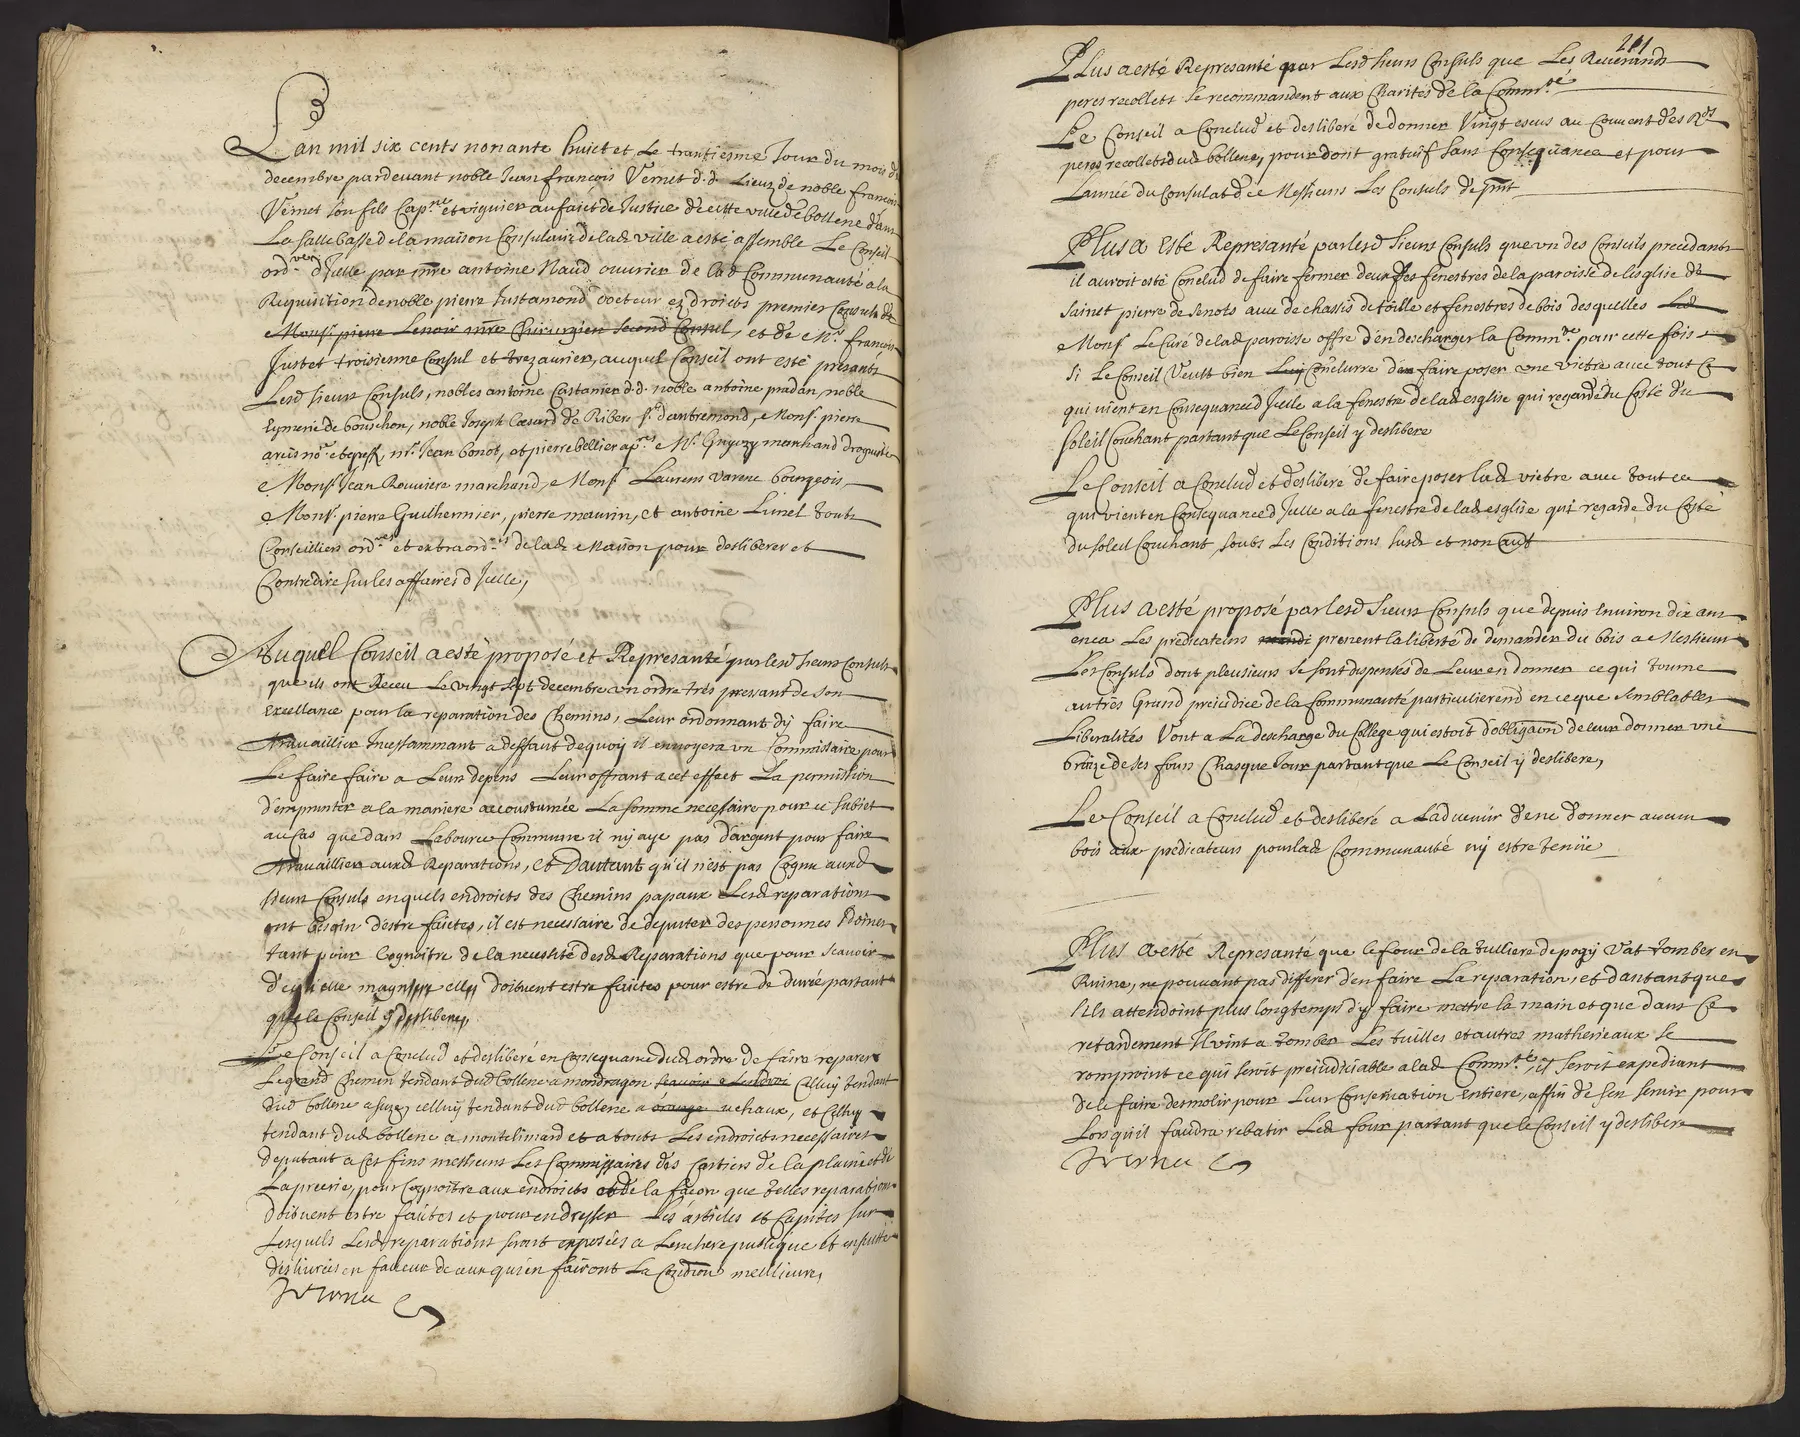 L'an mil six cents nonante huict et le trantiesme Jour du mois de
decembre pardevant noble Jean françois Vernet d.d. Lieuz de noble françois
Vernet son fils Cap.ne et viguier au faict de Justice de cette ville de bollene dans
La salle basse de la maison Consulaire de lad ville a esté assemblé Le Conseil
ord.re d Jcelle par mre antoine Naud ouvrier de lad Communauté a la
Requisition de noble pierre Justamond docteur ez droicts premier Consul de
Monsr pierre Lenoir mre Chirurgien second Consul, et de Mr. françois
Justet troisiesme Consul et trezaurier, auquel Conseil ont esté présants
Lesd sieurs Consuls, nobles antoine Castanier d.d. noble antoine pradan, noble
Eymeric de bouschon, noble Joseph Cæsard de Ribere sr d'antremond, Monsr pierre
not.re et greffr, mr. Jean bonot, et pierre bellier ap.res Mr. marchand droguiste
Monsr Jean Rouviere marchand, Monsr Laurens varene bourgeois,
Monsr pierre Guilhermier, pierre maurin, et antoine Limel touts
Conseilliers ord.res et extraord.res de lad Maison pour deslibérer et
Contredire sur les affaires d Jcelle,
Auquel Conseil a esté proposé et Represanté par lesd sieurs Consuls
que ils ont Receu Le vingt sept decembre un ordre très pressant de son
Excellance pour la reparation des Chemins, Leur ordonnant dy faire
travaillier Incessammant a deffaut dequoy il envoyera un Commissaire pour
Le faire faire a Leurs depens Leur offrant a cet effaet La permission
d'emprunter a la maniere accoustumée La somme necessaire pour ce subiet
au cas que dans La bource Commune il ny aye pas d'argent pour faire
travaillier auxd Reparations, et d'autant qu'il n'est pas Cognu auxd
sieurs Consuls en quels endroicts des Chemins papaux Lesd reparations
ont besoin d'estre faictes, il est necessaire de deputer des personnes Idoines
tant pour Cognoître de la necessité desd Reparations que pour scavoir
d'e quelle elles doibuent estre faictes pour estre de durée partant
que le Conseil y deslibere,
Le Conseil a Conclud et desliberé en Consequance dud ordre de faire reparer
Le grand Chemin tendant dud bollene a mondragon Celluy tendant
dud bollene a suze celluy tendant dud bollene a orange uchaux, et Celluy
tendant dud bollene a montelimard et a touts Les endroicts necessaires
deputant a Ces fins messieurs Les Commissaires des Cartiers de la plaine et de
La preerie, pour Cognoître aux endroicts et de la façon que telles reparations
doibuent estre faictes et pour en dresser Les articles et Capites sur
Lesquels Lesd reparations seront exposées a Lenchere publique et ensuitte
deslivrées en faveur de ceux qui en fairont La condition meilleure,
211
Plus a esté Represanté par Lesd sieurs Consuls que Les Reverands
peres recollets se recommandent aux Charités de la Commu.té
Le Conseil a Conclud et desliberé de donner Vingt escus au Couvent des Rds
peres recollets dud bollene, pour dont gratuif sans Consequance et pour
L'année du Consulat de Messieurs Les Consuls de pnt
Plus a esté Represanté par lesd sieurs Consuls que un des Conseils precedants
il auroit esté Conclud de faire fermer deux des fenestres de la paroisse de Leglise de
sainct pierre de senots avec de chassis de toille et fenestres de bois desquelles
Monsr Le Curé de lad paroisse offre d'en descharger la Comm.té pour cette fois
si Le Conseil Veutt bien Conclurre de faire poser une vietre avec tout Ce
qui vient en Consequance d Jcelle a la fenestre de lad esglise qui regarde du Costé du
soleil Couchant partant que Le Conseil y deslibere
Le Conseil a Conclud et desliberé de faire poser lad vietre avec tout ce
qui vient en Consequance d Jcelle a la fenestre de lad esglise qui regarde du Costé
du soleil Couchant, soubs Les Conditions susd et non aut
Plus a esté proposé par lesd sieurs Consuls que depuis Environ dix ans
en ca Les predicateurs prenent la liberté de demander du bois a Messieurs
Les Consuls dont plusieurs se sont dispensés de Leur en donner ce qui tourne
au très Grand preiudice de la Communauté particulierement en ce que semblables
Liberalités Vont a La descharge du College qui estoit d'obligaon de leur donner une
de ses fours Chasque Jour partant que Le Conseil y deslibere,
Le Conseil a Conclud et desliberé a Ladvenir d'ene donner aucun
bois aux predicateurs pour lad Communauté ny estre tenüe
Plus a esté Represanté que le four de la tulliere de pogy Vat tomber en
Ruine, ne pouvant pas differer d'en faire La reparation, et d'autant que
sils attendoint plus longtemps d'y faire mettre la main et que dans Ce
retardement Il vint a tomber Les tuilles et autres matherieaux se
romproint ce qui seroit preiudiciable a lad Commu.té, il seroit expediant
de le faire desmolir pour Leur Conservation Entiere, affin de sen servir pour
Lors qu'il faudra rebatir Led four partant que le Conseil y deslibere